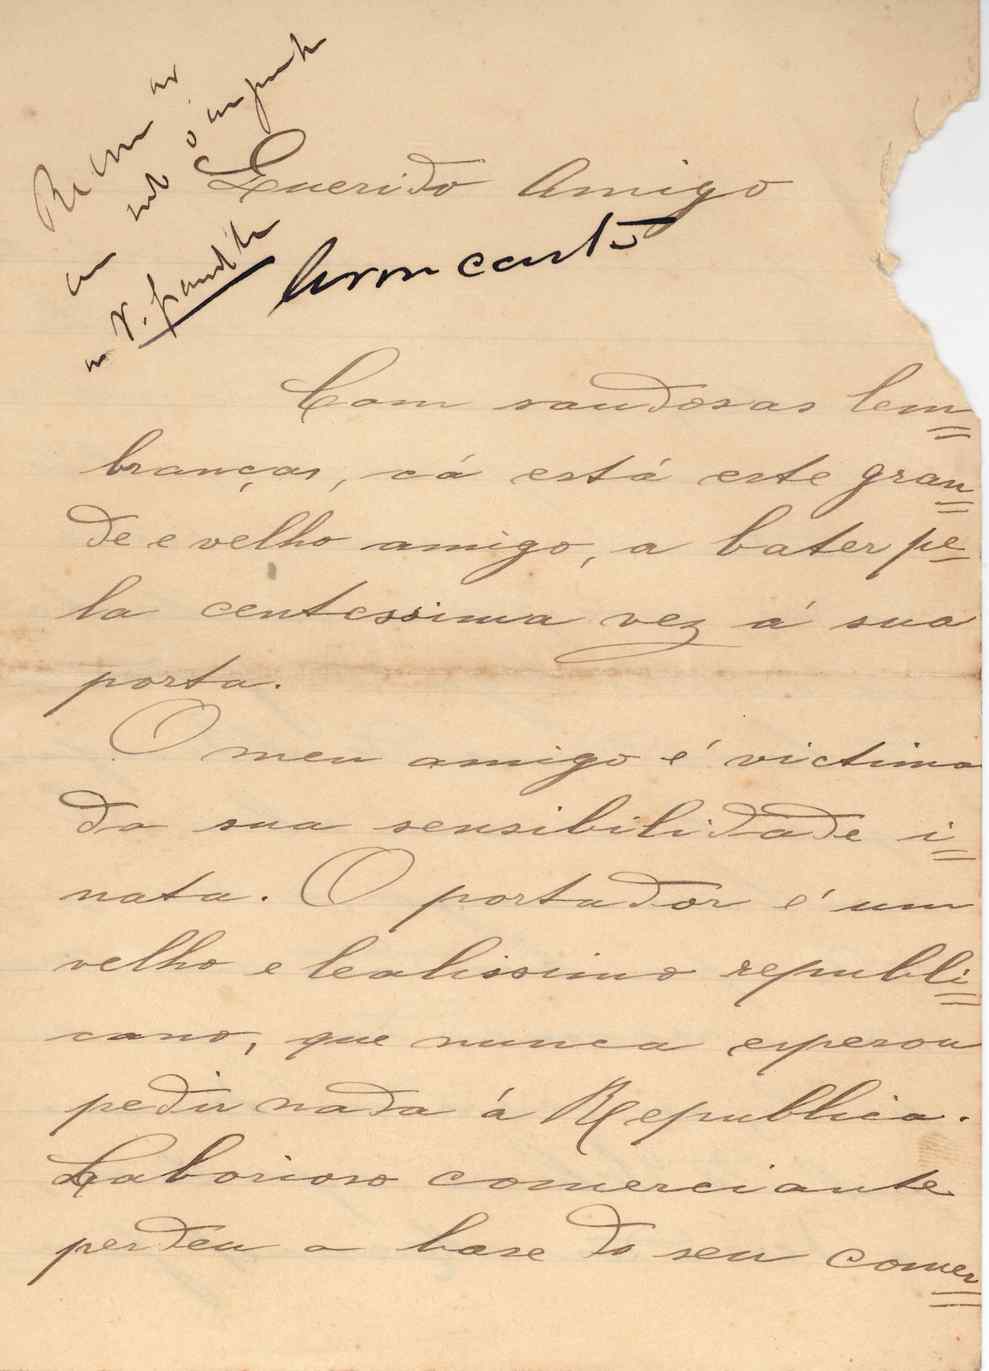 Querido Amigo
Com saudosas lem=
branças, cá está este gran=
de e velho amigo, a bater pe-
la centessima vez á sua
porta.
O meu amigo é victima
da sua sensibilidade i=
nata. O portador é um
velho e lealissimo republi=
cano, que nunca esperou
pedir nada á Republica.
Laborioso comerciante
perdeu a base do seu comer=